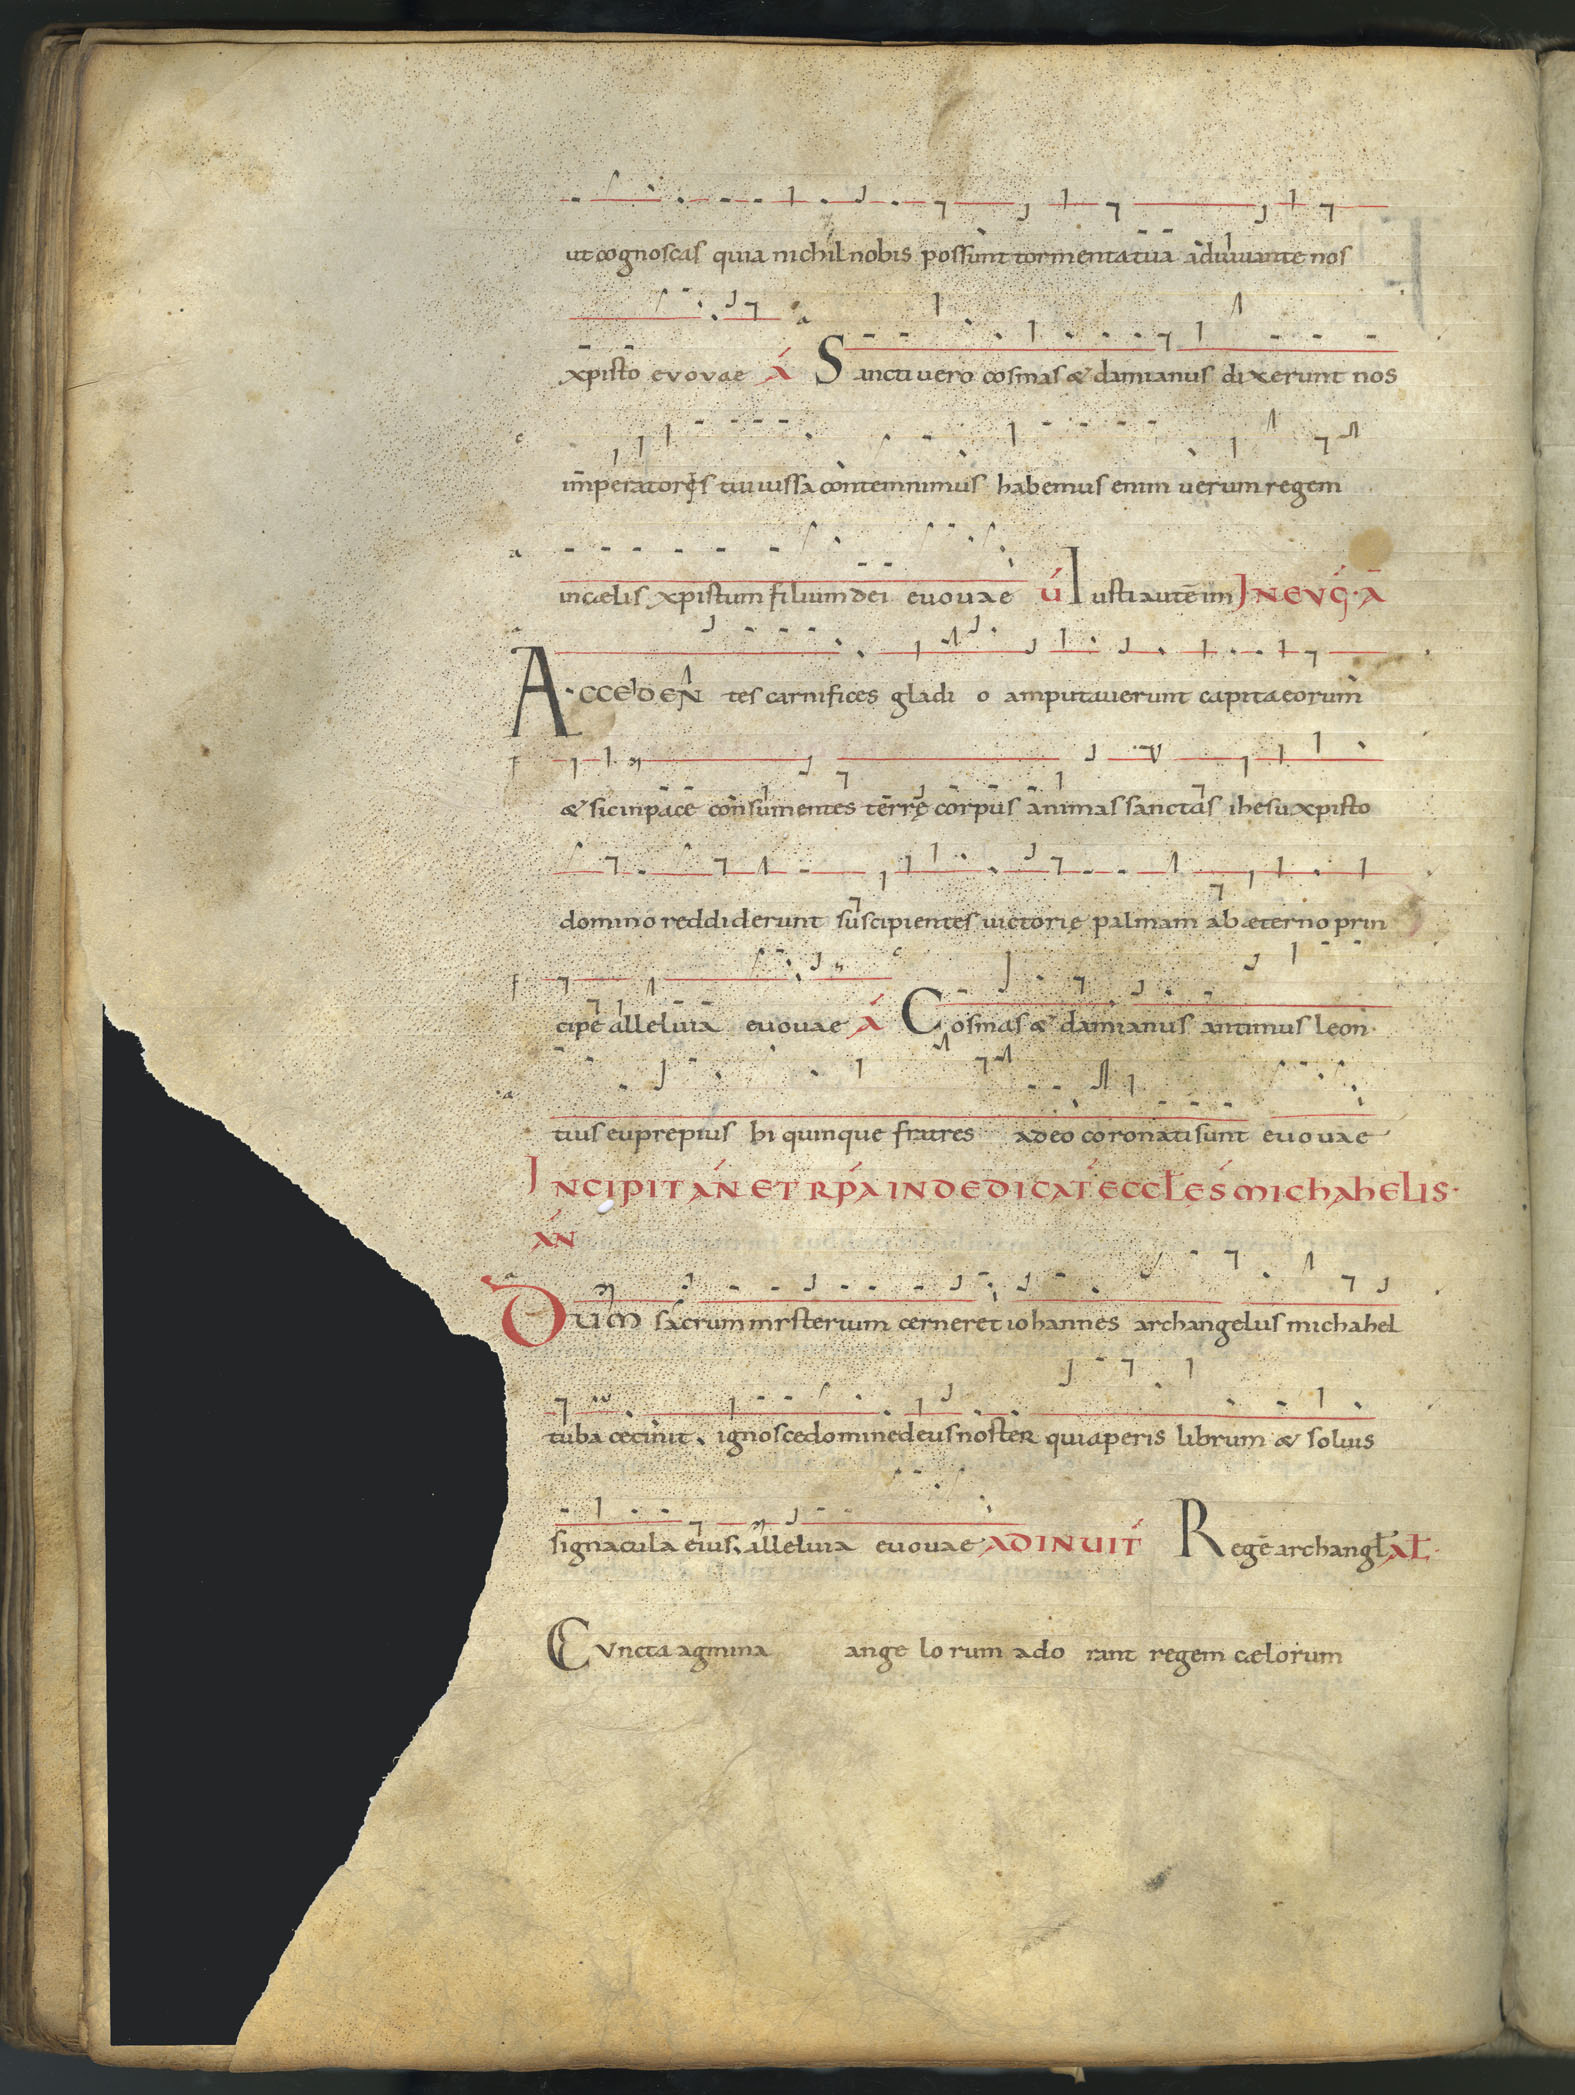 ut cognoscas quia nichil nobis possunt tormenta tua adiuuante nos
xpisto evovae Á Sancti uero cosmas & damianus dixerunt nos
imperatorẹs tui iussa contemnimus habemus enim uerum regem
in cælis xpistum filium dei euouae ú Iusti autē im IN EVG̃ · Ā
ACCEDEN tes carnifices gladi o amputauerunt capita eorum
& sic in pace consumentes terrę corpus animas sanctas ihesu xpisto
domino reddiderunt suscipientes uictorię palmam ab æterno prin
cipe alleluia euouae Á Cosmas & damianus antimus leon·
tius euprepius hi quinque fratres a deo coronati sunt euouae
INCIPIT AŃ ET RṔA IN DEDICAT́ ECCŁES MICHAHELIS·
AŃ
DUM sacrum mysterium cerneret iohannes archangelus michahel
tuba cecinit. ignosce domine deus noster qui aperis librum & soluis
signacula eius. alleluia euouae AD INUIT́ Regē archangł AŁ·
CVncta agmina ange lo rum ado rant regem cælorum